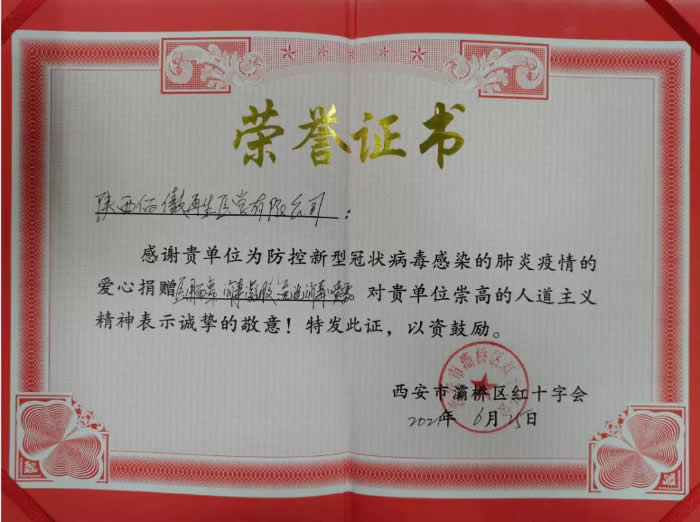 荣誉证书
陕西佰傲再生医学有限公司：
感谢贵单位为防控新型冠状病毒感染的肺炎疫情的
爱心捐赠 对贵单位崇高的人道主义
精神表示诚挚的敬意！特发此证，以资鼓励。
西安市灞桥区红十字会
2021年 6月25日